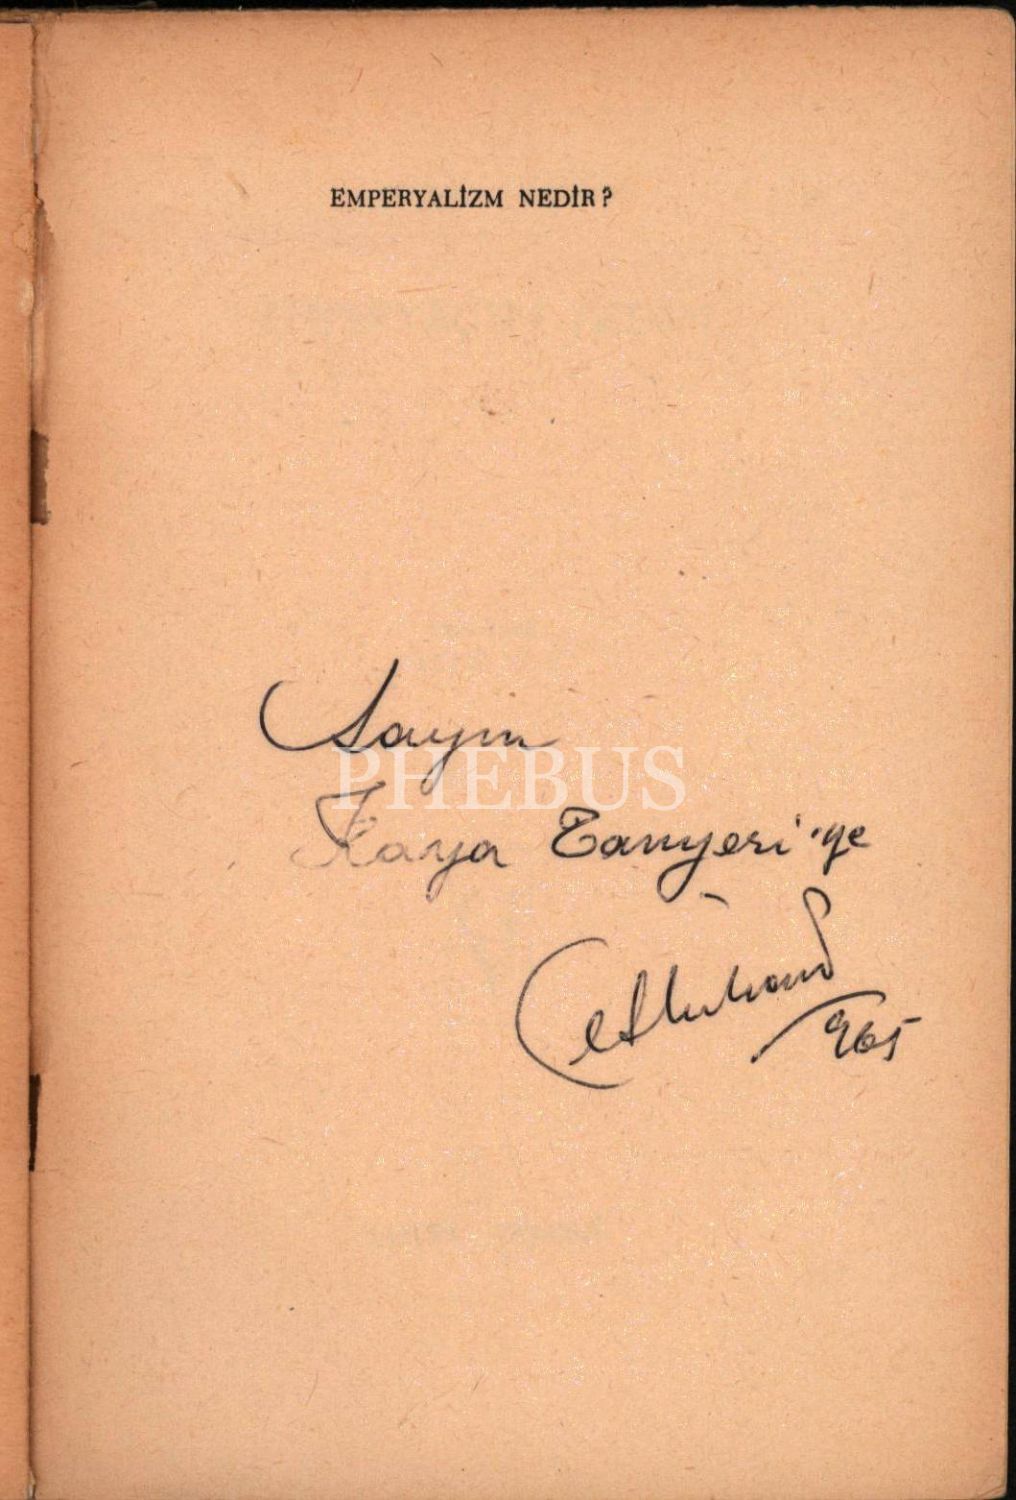 EMPERYALİZM NEDİR?
Sayın
PHEBUS
Kaya Tanyeri'ye
965